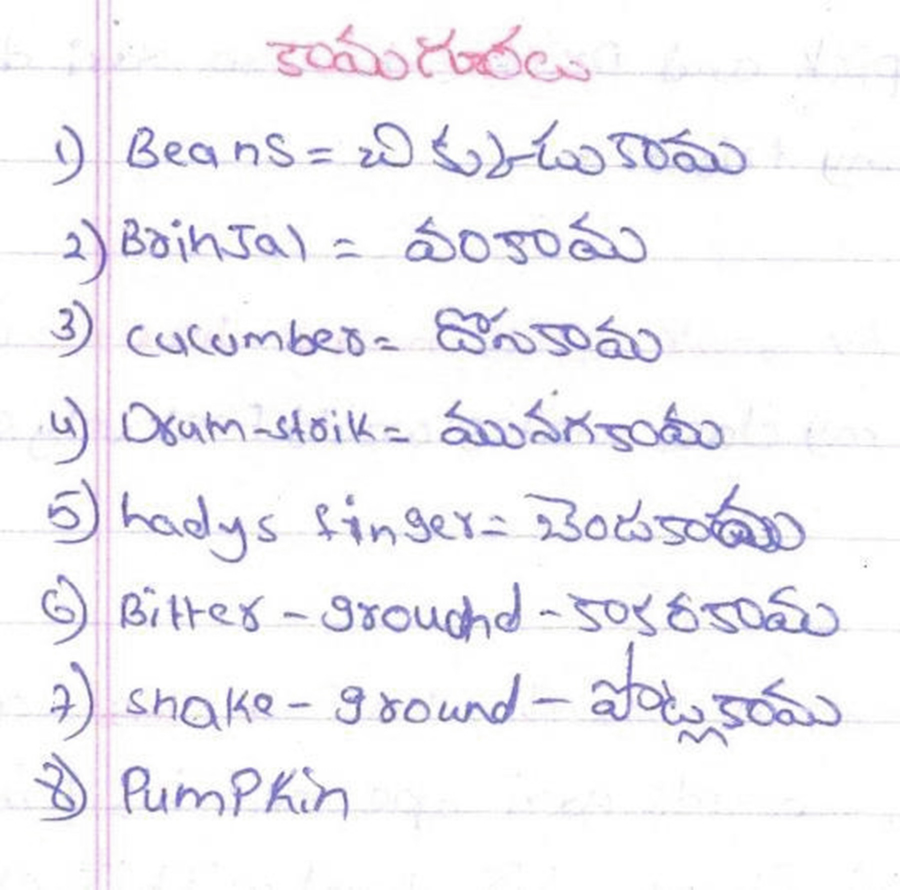 కాయగూరలు
1) Beans = చిక్కుడుకాయ
2) Brinjal = వంకాయ
3) cucumber = దోసకాయ
4) Drum-strik = మునగకాయ
5) hadys finger = బెండకాయ
6) Bitter - grouhd - కాకరకాయ
7) snake - ground - పోట్లకాయ
8) Pumpkin